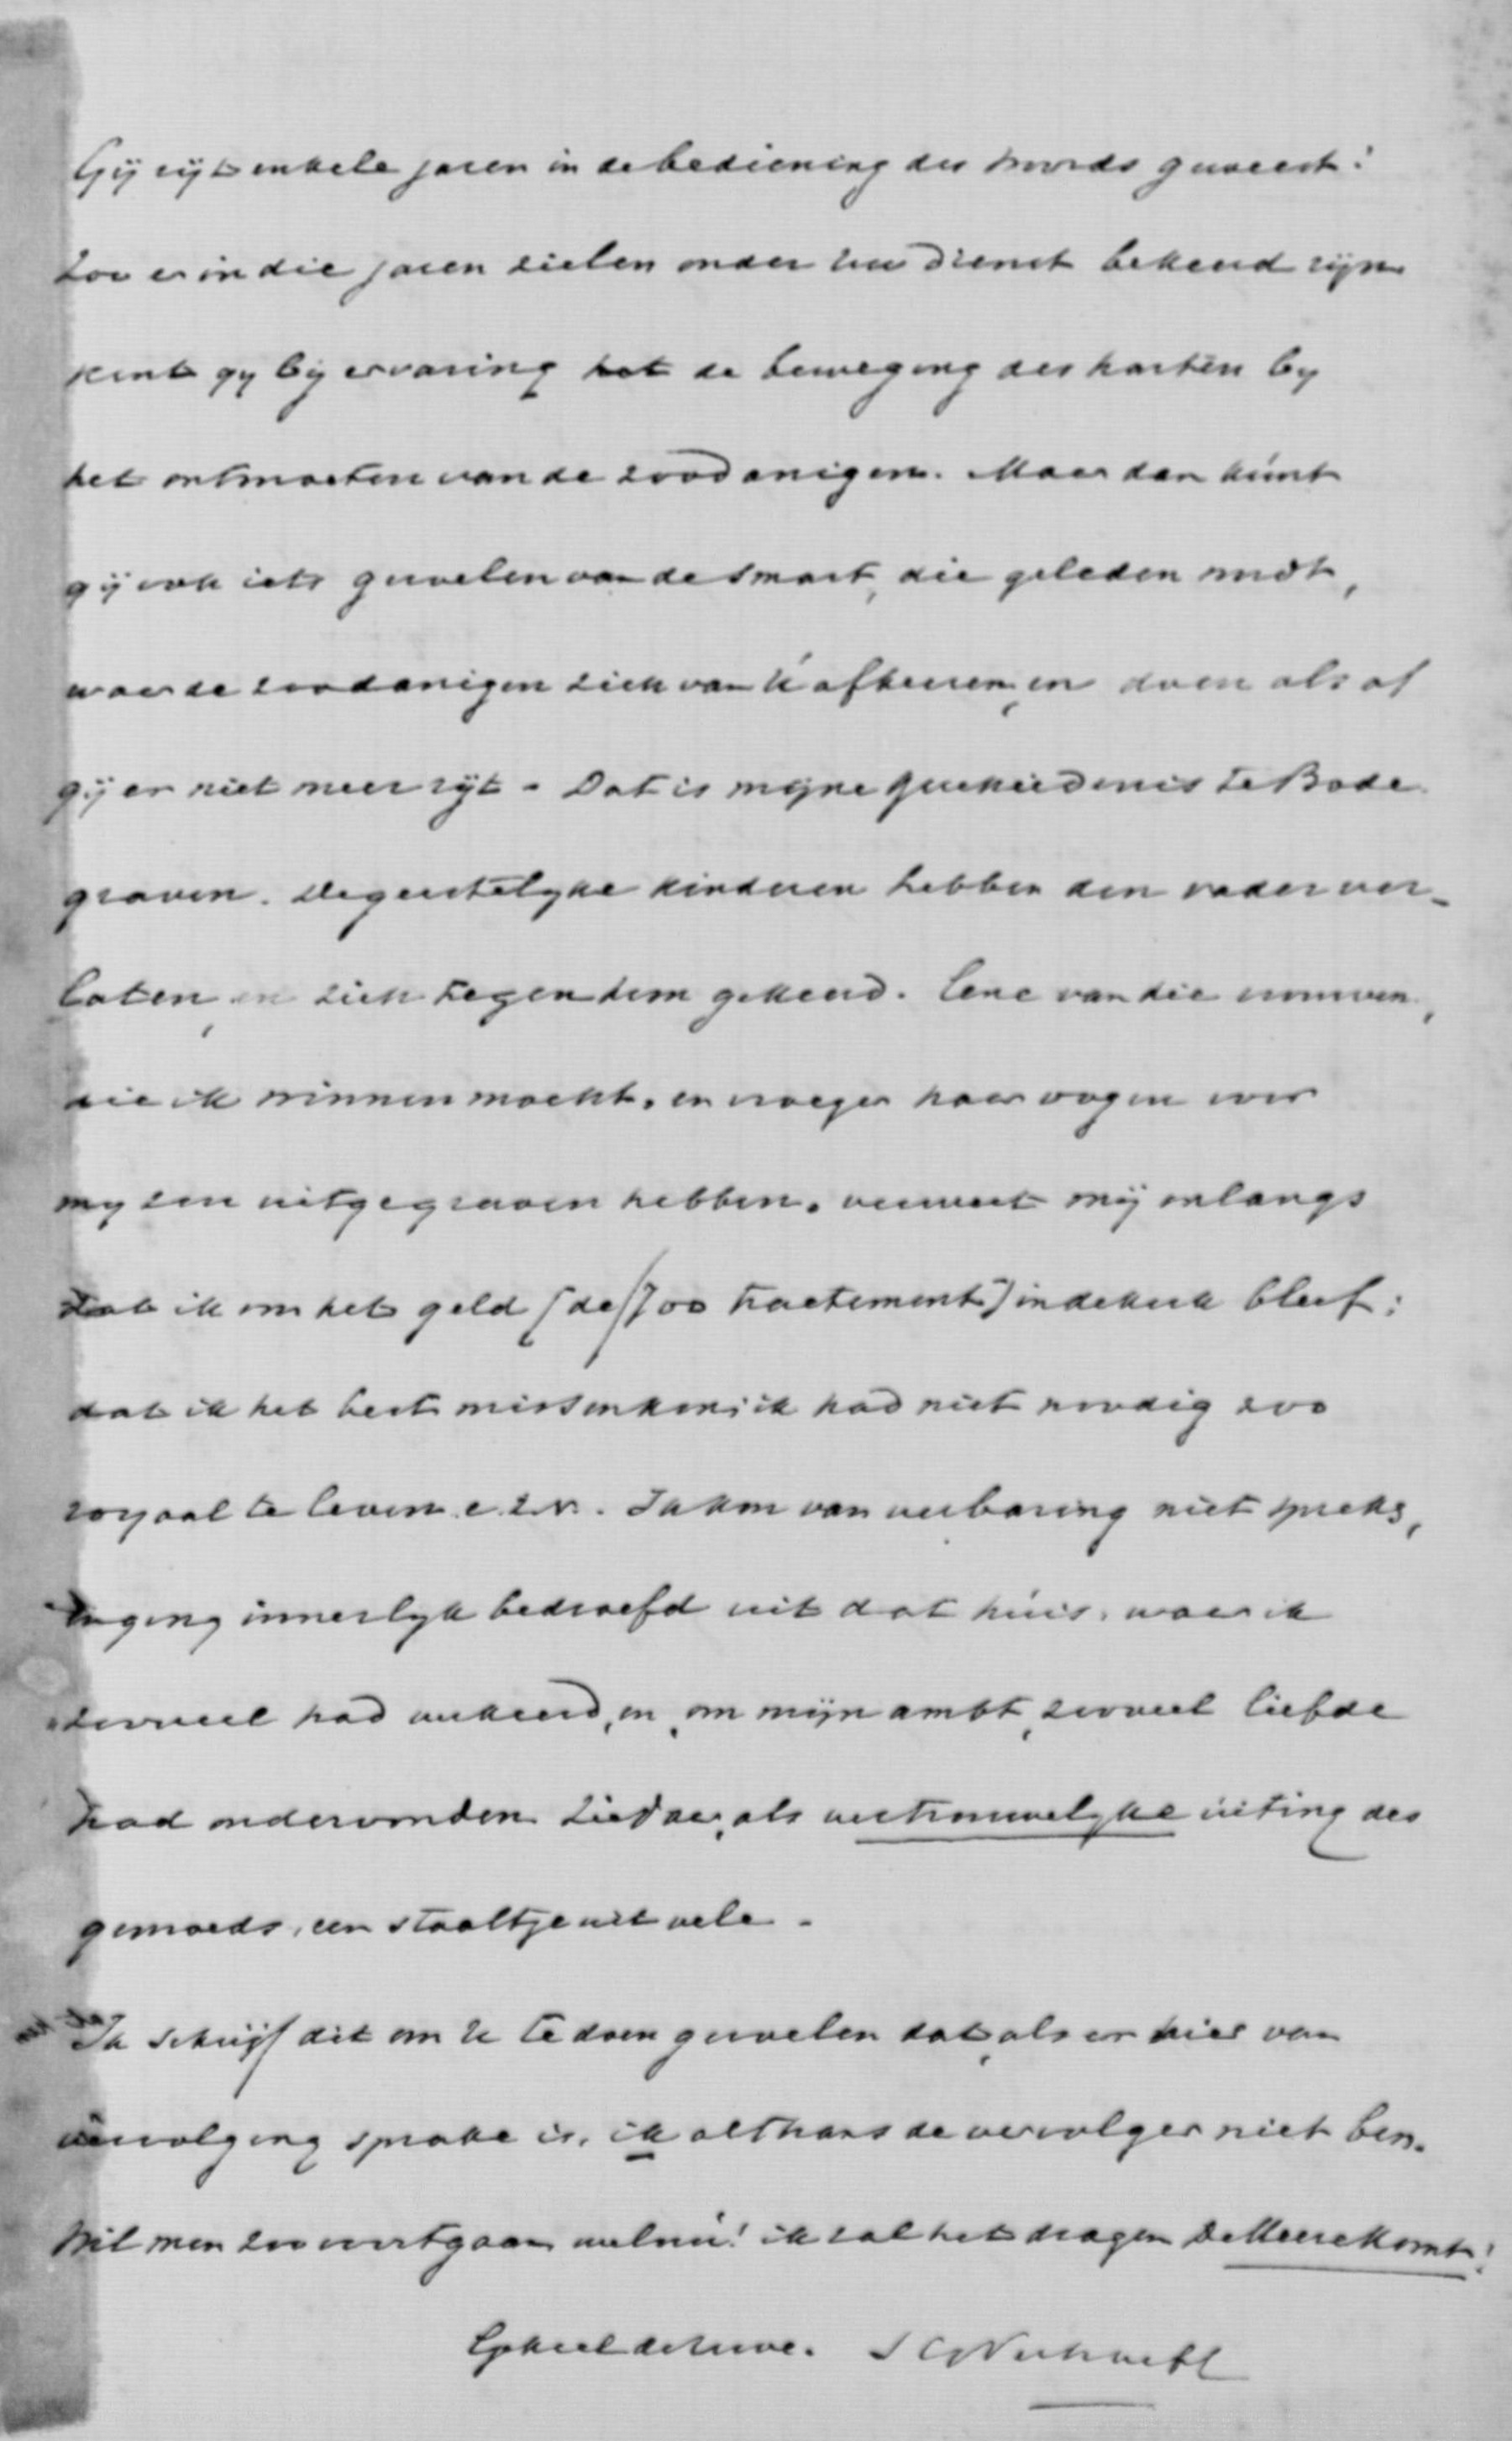 Gij zijt enkele jaren in de bediening des Woords geweest:
zoo er in die jaren zielen onder uw dienst bekeerd zijn
kent gij bij ervaring het de beweging des harten bij
het ontmoeten van de zoodanigen. Maar dan kunt
gij ook iets gevoelen van de smart, die geleden wordt,
waar de zoodanigen zich van U afkeeren, en doen als of
gij er niet meer zijt. Dat is mijne geschiedenis te Bode
graven. De geestelijke kinderen hebben den vader ver-
laten, en zich tegen hem gekeerd. Eene van die vrouwen,
die ik winnen mocht, en vroeger haar oogen voor
mij zou uitgegraven hebben, verweet mij onlangs
dat ik om het geld (de ƒ700 tractement) in de kerk bleef:
dat ik het best missen kon; ik had niet noodig zoo
royaal te leven e.z.v. Ik kon van verbazing niet spreken,
en ging innerlijk bedroefd uit dat huis, waar ik
zooveel had verkeerd, en, om mijn ambt, zooveel liefde
had ondervonden. Ziedaar, als vertrouwelijke uiting des
gemoeds, een staaltje uit vele.
Ik schrijf dit om U te doen gevoelen dat, als er hier van
vervolging sprake is, ik althans de vervolger niet ben.
Wil men zoo voortgaan welnu! ik zal het dragen De Heere komt!
Geheel de Uwe.